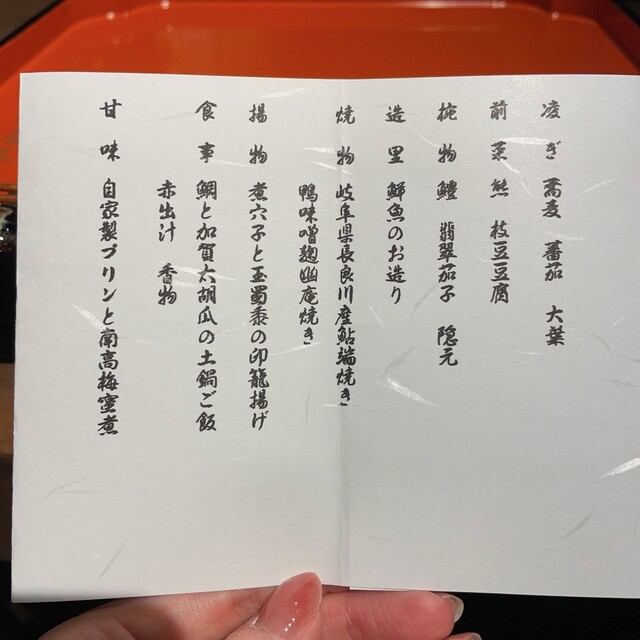 凌ぎ 蕎麦 蕃茄 大葉
前菜 熊 枝豆豆腐
椀物 鱧 翡翠茄子 隠元
造里 鮮魚のお造り
焼物 岐阜県長良川産鮎端焼き
鴨味噌麹幽庵焼き
揚物 煮穴子と玉蜀黍の印籠揚げ
食事 鯛と加賀太胡瓜の土鍋ご飯
赤出汁 香物
甘味 自家製プリンと南高梅蜜煮